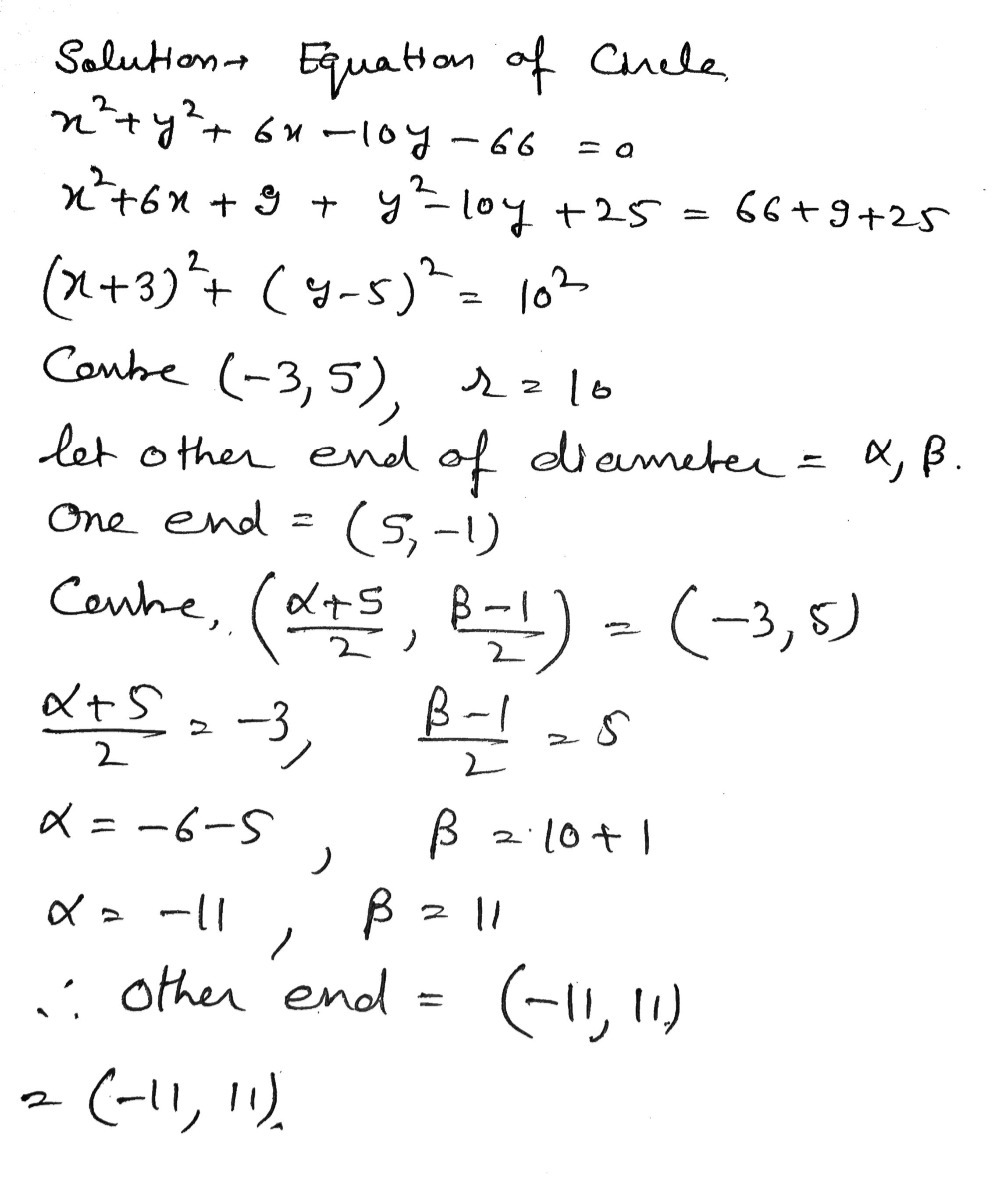 Solution→ Equation of Circle
x²+y²+ 6x -10y -66 = 0
x²+6x + 9 + y²-10y +25 = 66+9+25
(x+3)²+ (y-5)² = 10²
Centre (-3, 5), r = 10
let other end of diameter = α, β.
One end = (5, -1)
Centre, (α+5/2, β-1/2) = (-3, 5)
α+5/2 = -3, β-1/2 = 5
α = -6-5, β = 10+1
α = -11, β = 11
∴ Other end = (-11, 11)
= (-11, 11).